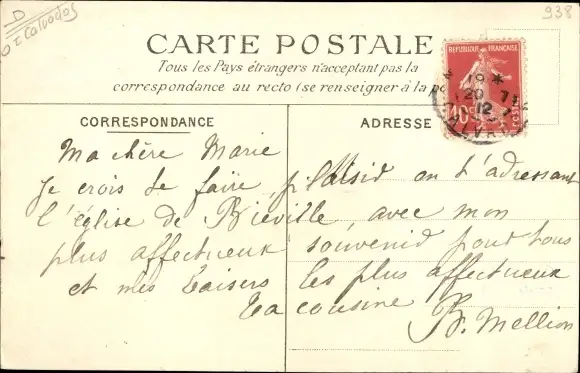 D
Calvados
938
CARTE POSTALE
Tous les Pays étrangers n'acceptant pas la
correspondance au recto (se renseigner à la po
REPUBLIQUE FRANÇAISE
10c
POSTES
18 *
20 7
12
CORRESPONDANCE
ADRESSE
Ma chère Marie
Je crois te faire plaisir en t'adressant
l'église de Biéville, avec mon
plus affectueux souvenir pour tous
et mes baisers les plus affectueux
Ta cousine
B. Mellion